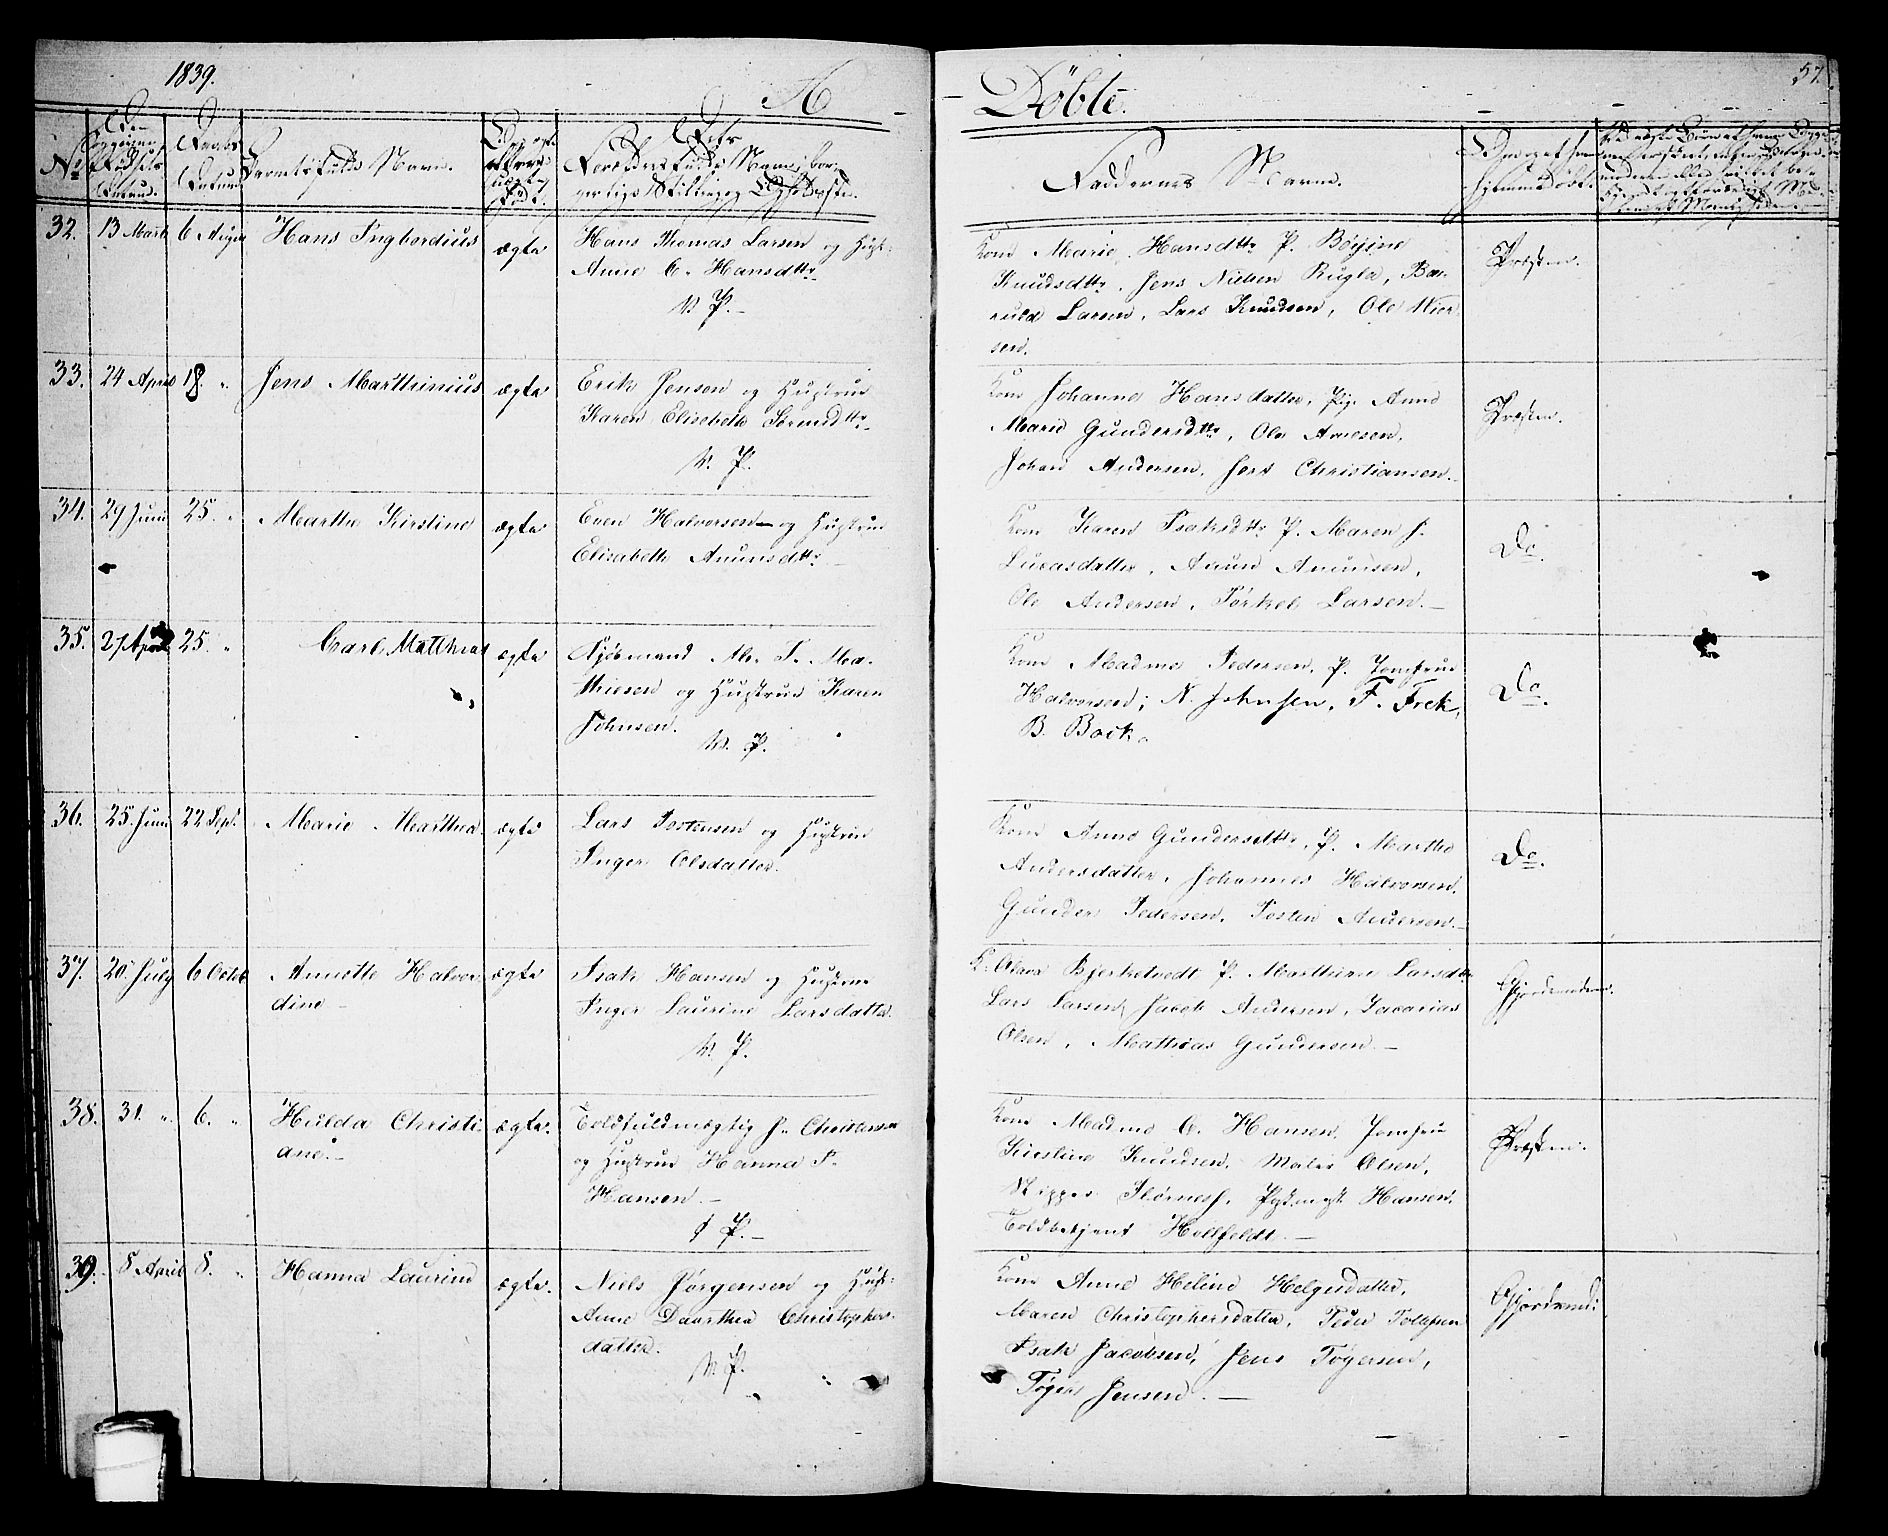 1839.
A
Döbte.
57.
No
Barnets fulde Navn.
Faddernes Navne.
32.
13 Marts
6 Augu
Hans Ingbordius
ægte
Hans Thomas Larsen og Hust:
Anne C. Hansdttr
W P.
Kone Marie Hansdttr P.
Knudsdttr, Jens Nielsen Rugla, Ba-
ruld Larsen, Lars Knudsen, Ole
sen.
Præsten.
33.
24 April
18. "
Jens Marthinius
ægte
Erik Jensen og Hustrue
Karen Elisabeth
W. P.
Kone Johanne Hansdatter, Pig. Anne
Marie Gundersdttr, Ole Anesen,
Johan Andersen, Jens Christiansen.
Præsten.
34.
29 Juni
25. "
Marthe Kirstine
ægte
Even Halvorsen og Hustrue
Elisabeth Anunsdttr
Kone Karen Isaksdttr P. Maren J.
Lucasdatter, Anun Anunsen,
Ole Andersen, Törkel Larsen.
Do.
35.
27 April
25. "
Carl Matthias
ægte
Sjömand M. T. Ma-
thiesen og Hustrue Karen
Johnsen.
W. P.
Kone Madme Pedersen, P. Jomfrue
Halvorsen; N. Johnsen, F. Frek,
B. Bock.
Do.
36.
25. Juni
22 Sept.
Marie Marthea
ægte
Lars Tostensen og Hustrue
Inger Olsdatter.
Kone Anne Gundersdttr, P. Marthe
Andersdatter, Johannes Halvorsen,
Gunder Pedersen, Tosten Andersen.
Do.
37.
20 July
6 Octob
Annette Halvor
dine
ægte
Isak Hansen og Hustrue
Inger Laurine Larsdatter.
W. P.
K. Olava Bjerketvedt P. Marthine Larsdttr
Lars Larsen, Jacob Andersen, Zacarias
Olsen, Mathias Gundersen.
38.
31. "
6. "
Hulda Christi-
ane.
ægte.
Toldfuldmægtig J. Christensen
og Hustrue Hanna P.
Hansen.
P.
Kone Madme C. Hansen, Jomfrue
Kirstine Knudsen, Maler Olsen,
Skipper Hansen,
Toldbetjent Hellfeldt.
Præsten.
39.
8 April
8. "
Hanna Laurine
ægte.
Niels Jörgensen og Hust:
Anne Dorthea Christopher-
datter.
W. P.
Kone Anne Heline Helgesdatter,
Maren Christophersdatter, Peder Tollefsen
Isak Jacobsen, Jens Tögersen,
Töger Jensen.